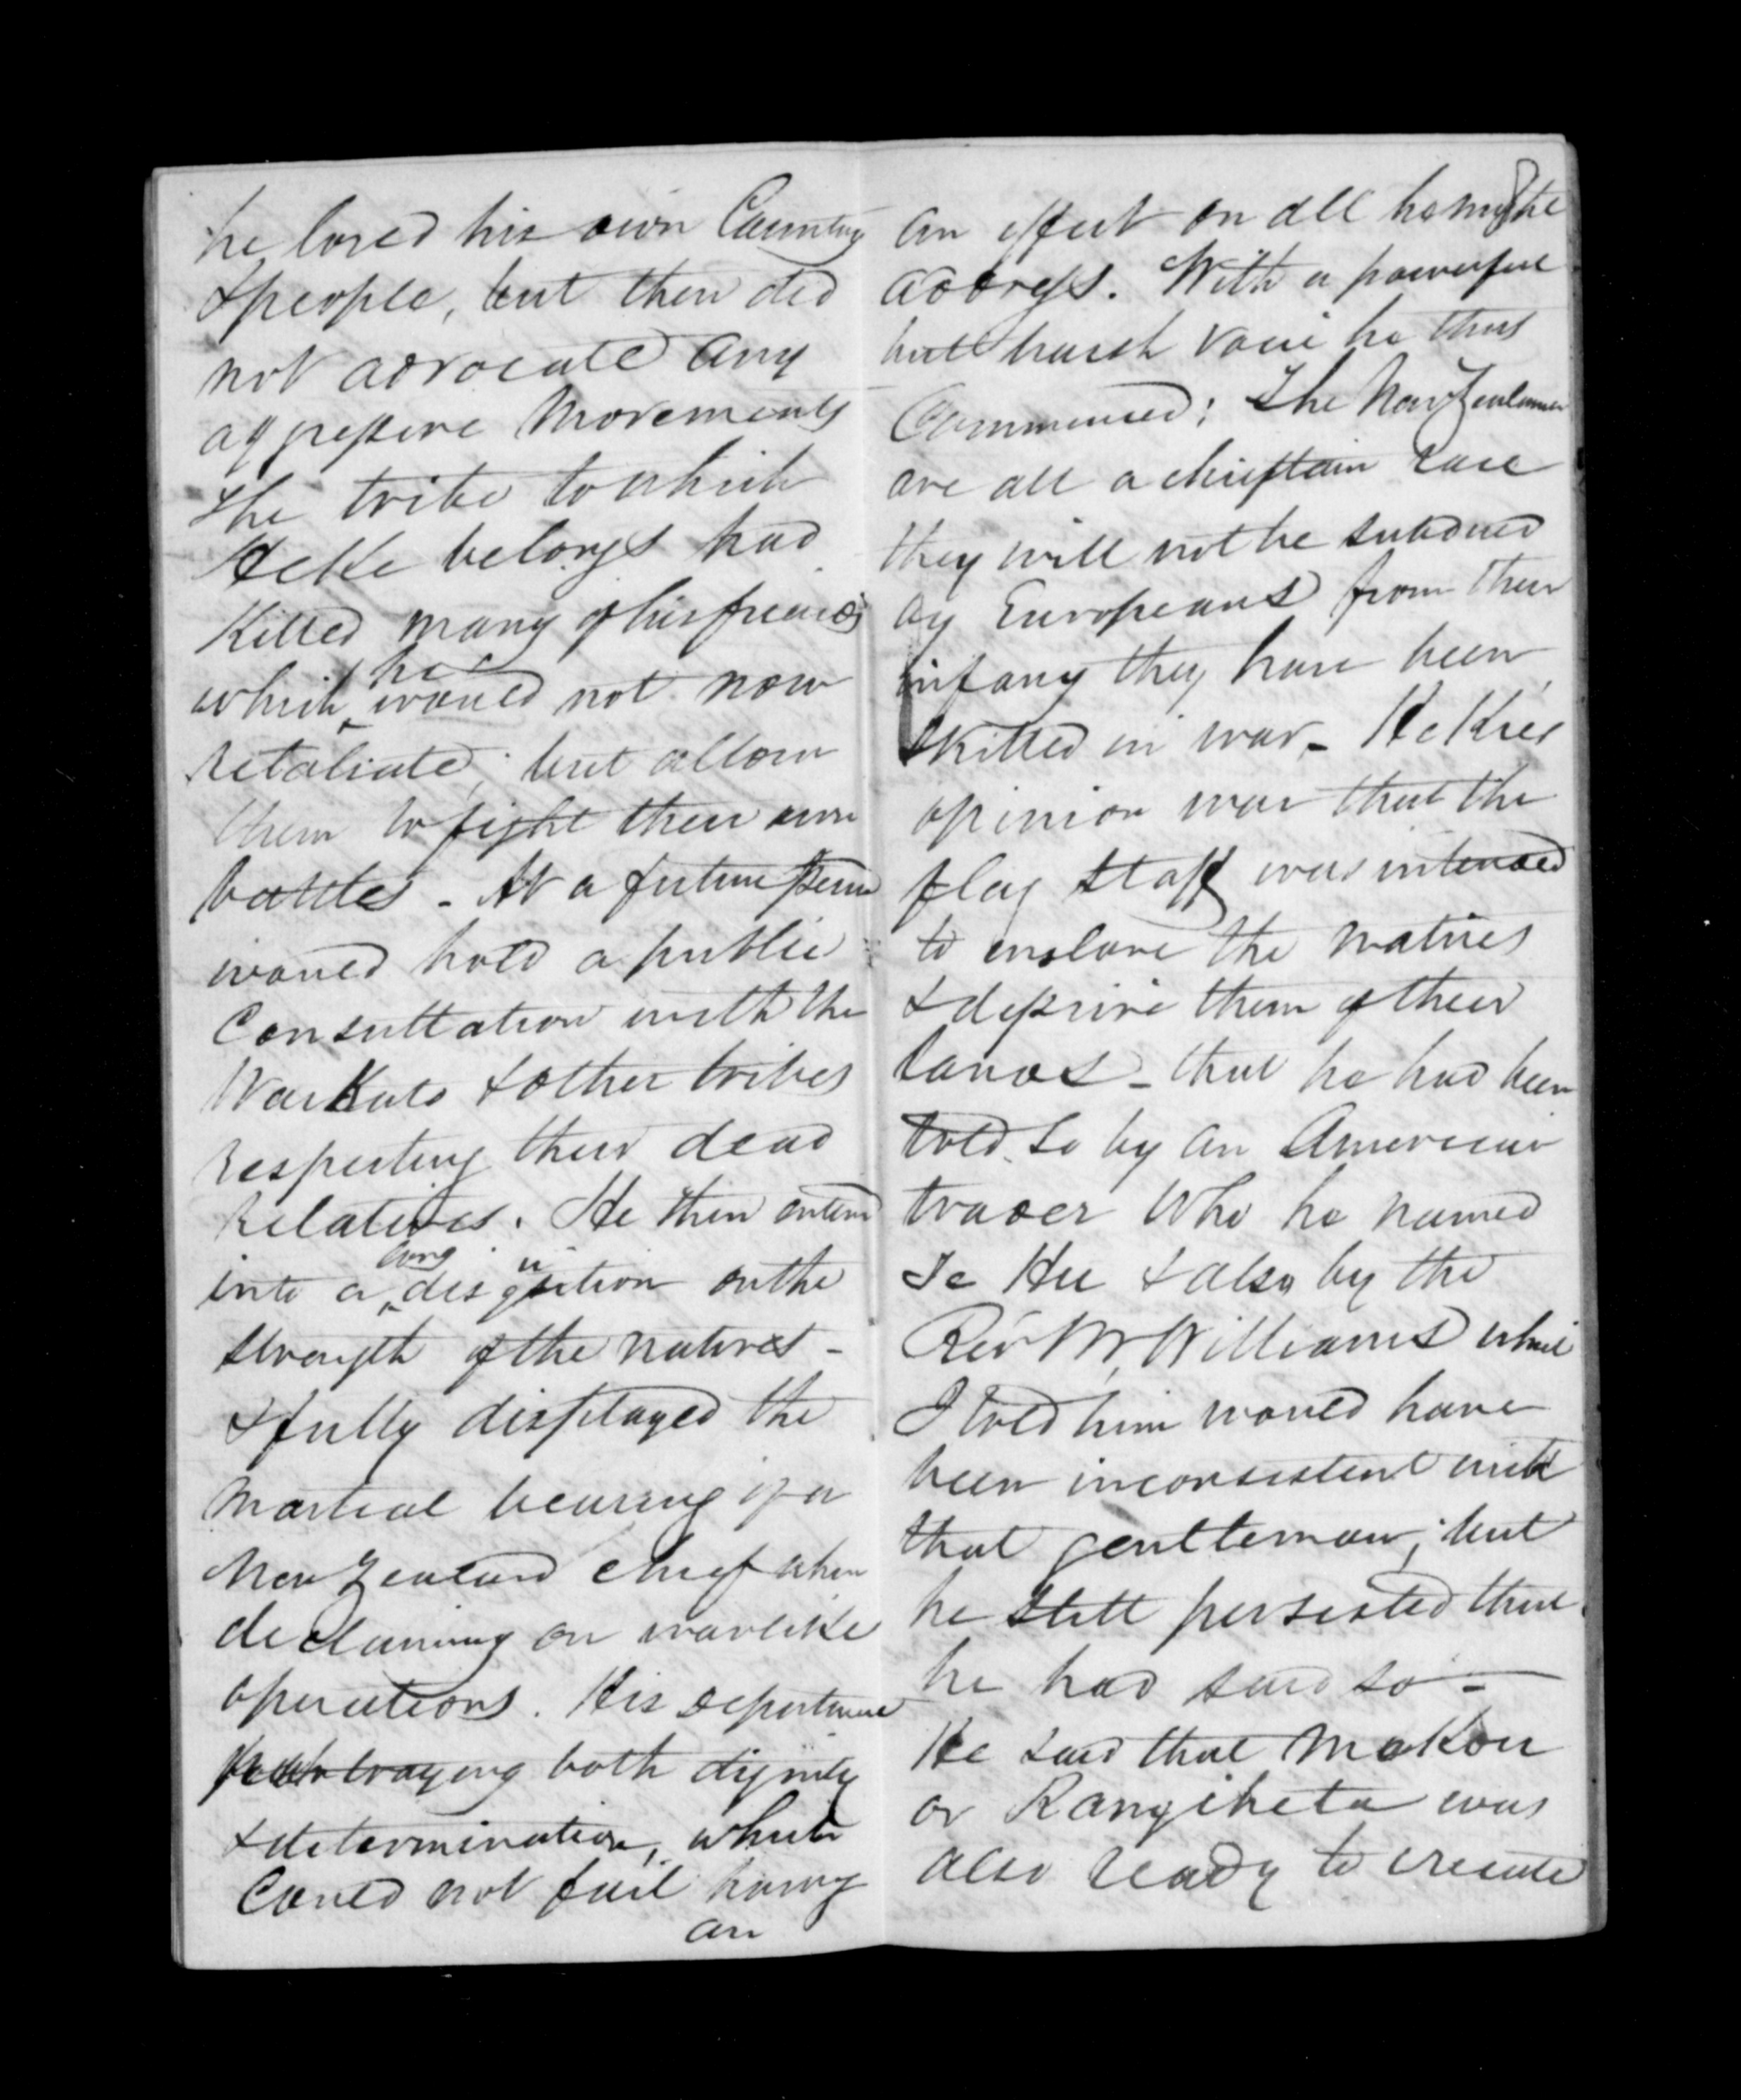 he loved his own Country
& people, but then did
not advocate any
aggressive movements
the tribe to which
Heke belongs had
Killed many of his friends
which he would not now
retaliate; but allow
them to fight their own
battles - At a future period
would hold a public
Consultation with the
Waikato & other tribes
respecting their dead
relatives. He then entered
into a long disquisition on the
strength of the natives -
& fully displayed the
martial bearing of a
New Zealand chief when
declaiming on warlike
operations. His deportment
portraying both dignity
& determination, which
Could not fail having
an
an effect on all he might
address. With a powerful
but harsh voice he thus
Commenced: The New Zealanders
are all a chieftain race
they will not be subdued
by Europeans from their
infancy they have been
skilled in war - Heke's
opinion was that the
flag staff was intended
to enslave the natives
& deprive them of their
lands - that he had been
told so by an American
trader Who he named
Te Hu & also by the
Revd Mr Williams which
I told him would have
been inconsistent with
that gentleman; but
he still persisted that
he had said so -
He said that Mokou
or Rangiheta was
also ready to create